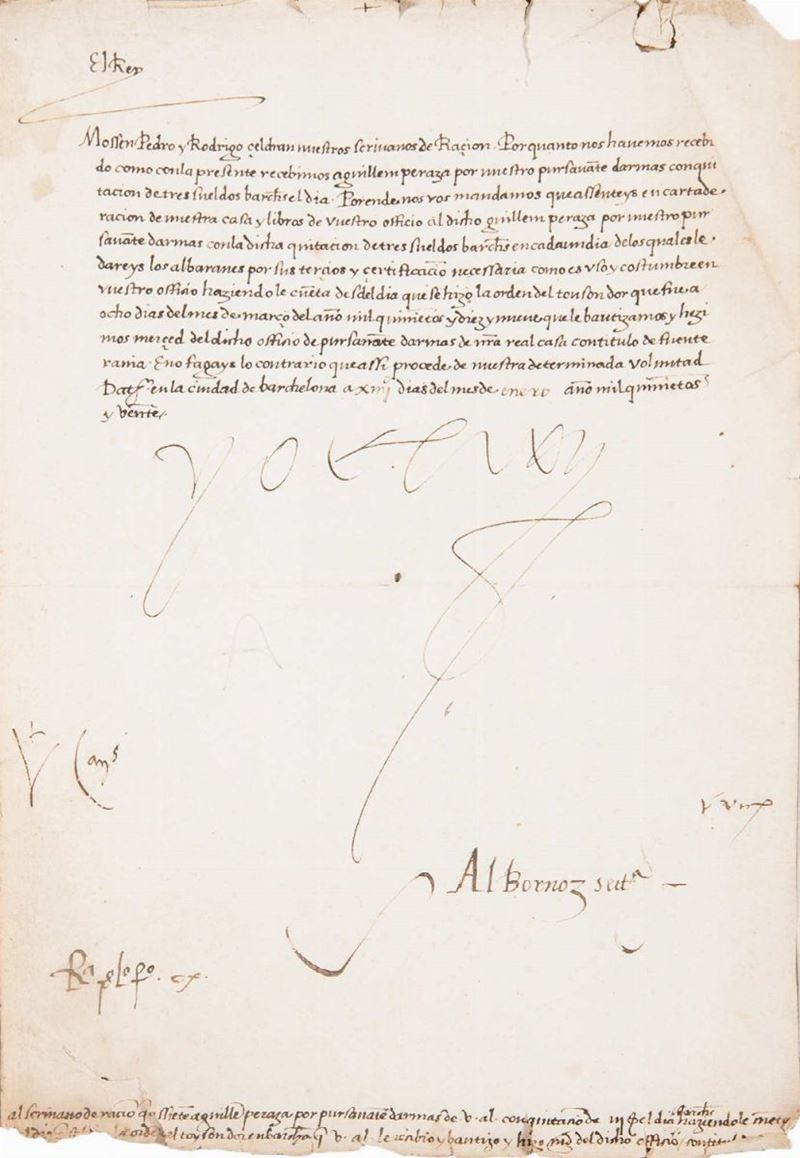 El Rey
Mossen Pedro y Rodrigo çeldran nuestros scriuanos de Raçion. Por quanto nos hauemos recebi
do como con la presente recebimos a guillem peraza por nuestro pursauãte darmas con qui
tacion de tres sueldos barchs el dia. Porende nos vos mandamos que assenteys en carta de
racion de nuestra casa y libros de vuestro officio al dicho guillem peraza por nuestro pur
sauãte darmas con la dicha quitacion de tres sueldos barchs en cada un dia de los quales le
dareys los albaranes por sus tercios y certificacio necessaria como es uso y costumbre en
vuestro officio haziendole cueta desdel dia que se hizo la orden del touson dor que fue a
ocho dias del mes de março del año mil quinietos y diez y nueue que le bautizamos y hezi
mos merced del dicho officio de pursauãte darmas de nra real casa con titulo de fuente
rauia. E no fagays lo contrario que assi procede de nuestra determinada voluntad
Datf en la ciudad de barchelona a xiiij dias del mes de enero año mil quinietos
y veinte.
yo el Rey
Albornoz
al scriuano de racio que assiete a guille peraza por pursauãte darmas de v. al. con quitacio de iij s el dia haziendole
del toyson dor en barchª q v. al. le recibio y bautizo y hizo md del dicho officio con